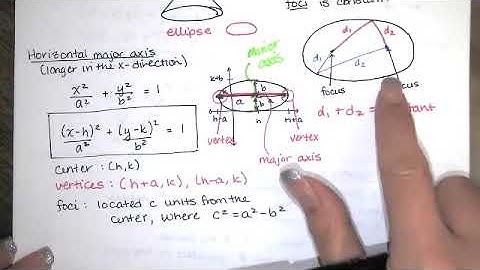 foci is constant
ellipse
Horizontal major axis
(longer in the x-direction)
x²/a² + y²/b² = 1
(x-h)²/a² + (y-k)²/b² = 1
center : (h,k)
vertices : (h+a,k), (h-a,k)
foci : located c units from the
center, where c² = a² - b²
minor
axis
k+b
b
a
b
h-a
h
h+a
vertex
vertex
major axis
d₁
d₂
d₁
d₂
focus
focus
d₁ + d₂ =